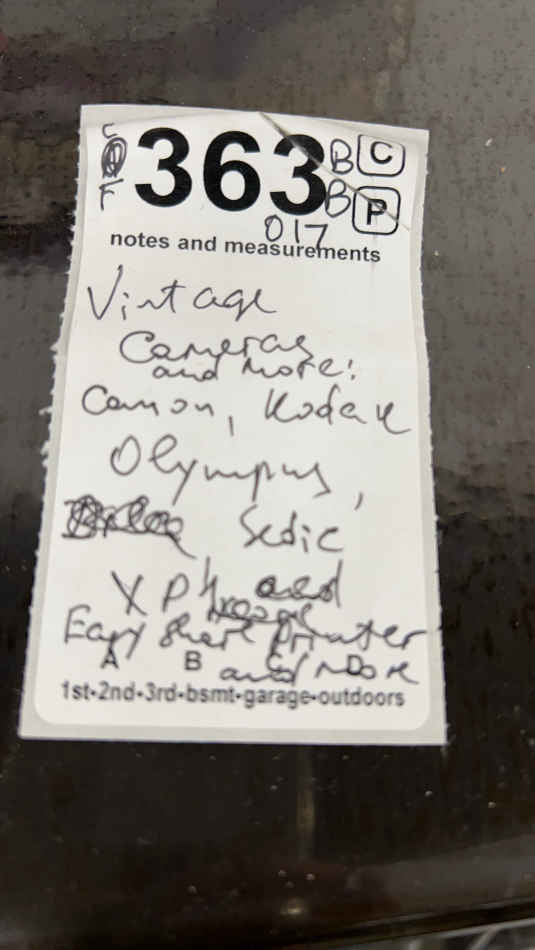 363
B C
B P
017
notes and measurements
Vintage
Cameras
and More:
Canon, Kodak
Olympus,
Sedic
and
Easy Share Printer
A B C D
and More
1st•2nd•3rd•bsmt•garage•outdoors